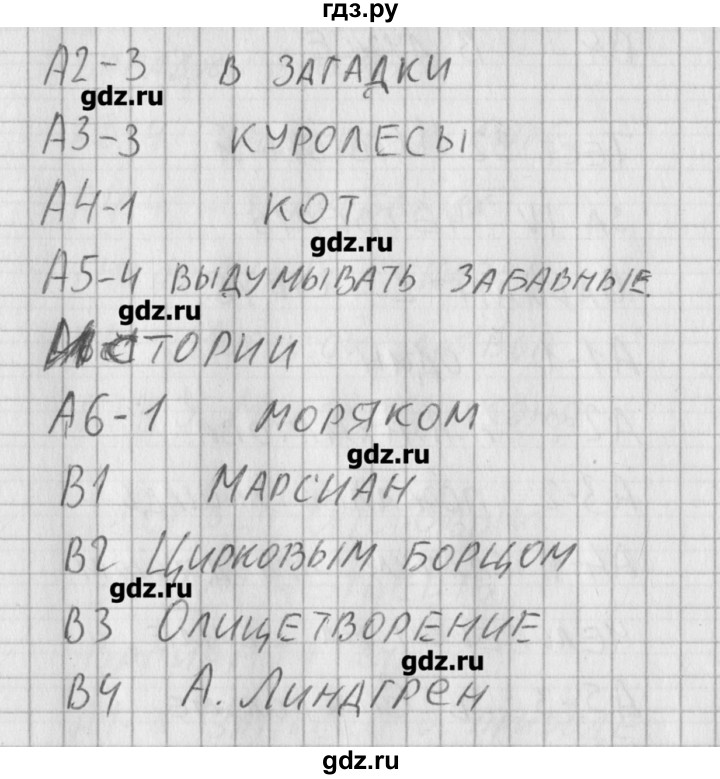 гдз.ру
А2-3 В ЗАГАДКИ
gdz.ru
А3-3 КУРОЛЕСЫ
А4-1 КОТ
gdz.ru
А5-4 ВЫДУМЫВАТЬ ЗАБАВНЫЕ
gdz.ru
ИСТОРИИ
А6-1 МОРЯКОМ
gdz.ru
В1 МАРСИАН
В2 ЦИРКОВЫМ БОРЦОМ
gdz.ru
В3 ОЛИЦЕТВОРЕНИЕ
gdz.ru
В4 А. ЛИНДГРЕН
gdz.ru